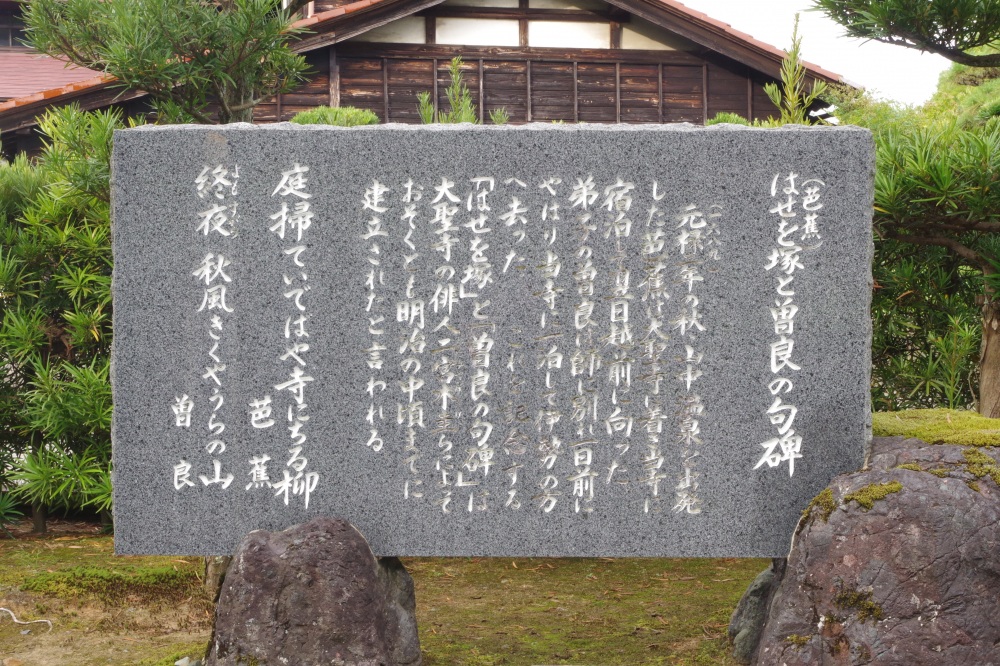 (芭蕉)
はせを塚と曽良の句碑
(一六八九)
元禄二年の秋、山中温泉を出発
した芭蕉は大聖寺に着き当寺に
宿泊し翌日越前に向った
弟子の曽良は師に別れ一日前に
やはり当寺に一泊して伊勢の方
へ去った これを記念する
「はせを塚」と「曽良の句碑」は
大聖寺の俳人二宮木圭らによって
おそくとも明治の中頃までに
建立されたと言われる
庭掃ていではや寺にちる柳
芭蕉
よもすがら
終夜 秋風きくやうらの山
曽良